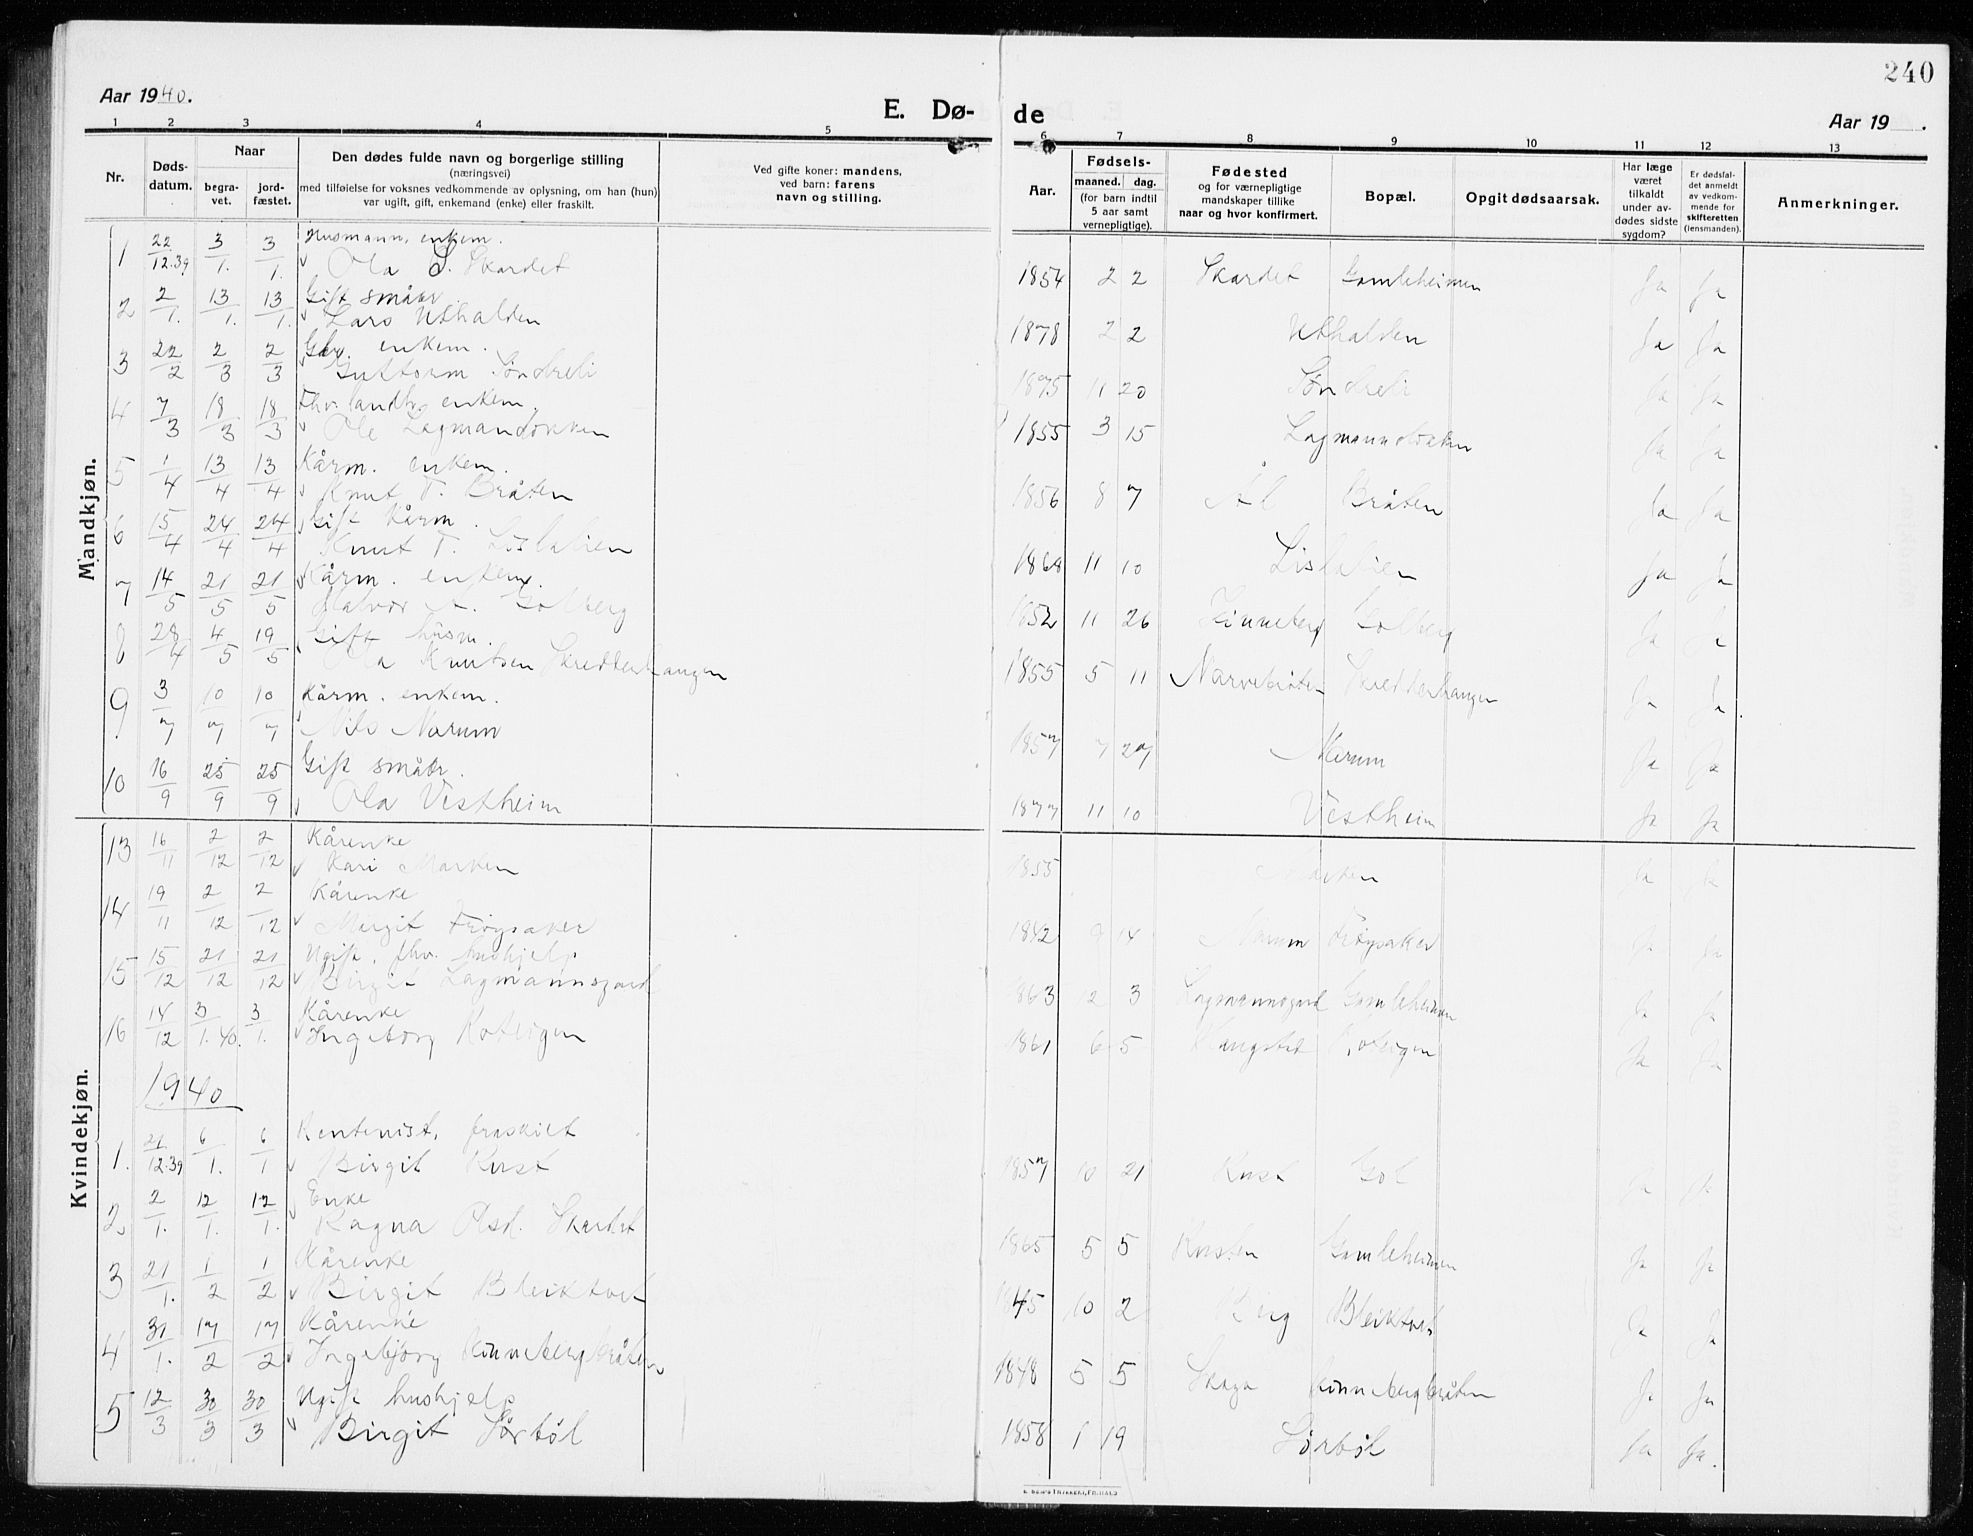 240
Aar 1940.
E. Dø-
de
Aar 19 .
1 2 3 4 5 6 7 8 9 10 11 12 13
Nr.
Døds-
datum.
Naar
begra-
vet.
jord-
fæstet.
Den dødes fulde navn og borgerlige stilling
(næringsvei)
med tilføielse for voksnes vedkommende av oplysning, om han (hun)
var ugift, gift, enkemand (enke) eller fraskilt.
Ved gifte koner: mandens,
ved barn: farens
navn og stilling.
Aar.
Fødsels-
maaned. dag.
(for barn indtil
5 aar samt
vernepligtige).
Fødested
og for værnepligtige
mandskaper tillike
naar og hvor konfirmert.
Bopæl.
Opgit dødsaarsak.
Har læge
været
tilkaldt
under av-
dødes sidste
sygdom?
Er dødsfal-
det anmeldt
av vedkom-
mende for
skifteretten
(lensmanden).
Anmerkninger.
Mandkjøn.
1 22/12.39 3/1. 3/1. Husmann, enkem.
Ola S. Skardet 1854 2 2 Skardet Gamleheimen Ja Ja
2 2/1. 13/1. 13/1. Gift småbr.
Lars Uthalden 1878 2 2 Uthalden Ja Ja
3 22/2 2/3 2/3 Gbr. enkem.
Guttorm Søndreli 1875 11 20 Søndreli Ja Ja
4 7/3 18/3 18/3 Fhv. landh. enkem.
Ole Lagmandokken 1855 3 15 Lagmandokken Ja Ja
5 1/4 13/4 13/4 Kårm. enkem.
Knut T. Bråten 1856 8 7 Ål Bråten Ja Ja
6 15/4 24/4 24/4 Gift Kårm.
Knut T. Lislelien 1868 11 10 Lislelien Ja Ja
7 14/5 21/5 21/5 Kårm. enkem.
Halvor A. Golberg 1852 11 26 Kinneberg Golberg Ja Ja
8 28/4 4/5 19/5 Gift husm.
Ola Knutsen Skredderhaugen 1855 5 11 Narvebråten Skredderhaugen Ja Ja
9 3/7 10/7 10/7 Kårm. enkem.
Nils Narum 1857 7 27 Narum Ja Ja
10 16/9 25/9 25/9 Gift småbr.
Ola Vestheim 1877 11 10 Vestheim Ja Ja
Kvindekjøn.
13 16/11 2/12 2/12 Kårenke
Kari Marken 1855 Marken Ja Ja
14 19/11 2/12 2/12 Kårenke
Margit Frøysaker 1842 9 14 Narum Frøysaker Ja Ja
15 15/12 21/12 21/12 Ugift, fhv. hushjelp
Birgit Lagmannsgard 1863 12 3 Lagmannsgard Gamleheimen Ja Ja
16 14/12 3/1.40. 3/1. Kårenke
Ingeborg Roteigen 1861 6 5 Roteigen Ja Ja
1940
1. 21/12.39 6/1. 6/1 Rentenist, fraskilt
Birgit Rust 1857 10 21 Rust Gol Ja Ja
2. 2/1. 12/1. 12/1. Enke
Ragna Olsd. Skardet 1865 5 5 Rusten Gamleheimen Ja Ja
3 21/1. 1/2 1/2 Kårenke
Birgit Bleiktvet 1845 10 2 Berg Bleiktvet Ja Ja
4 31/1. 17/2 17/2 Kårenke
Ingebjørg Kinnebergbråten 1848 5 5 Skaga Kinnebergbråten Ja Ja
5 12/3 30/3 30/3 Ugift hushjelp
Birgit Sørbøl 1858 1 19 Sørbøl Ja Ja.